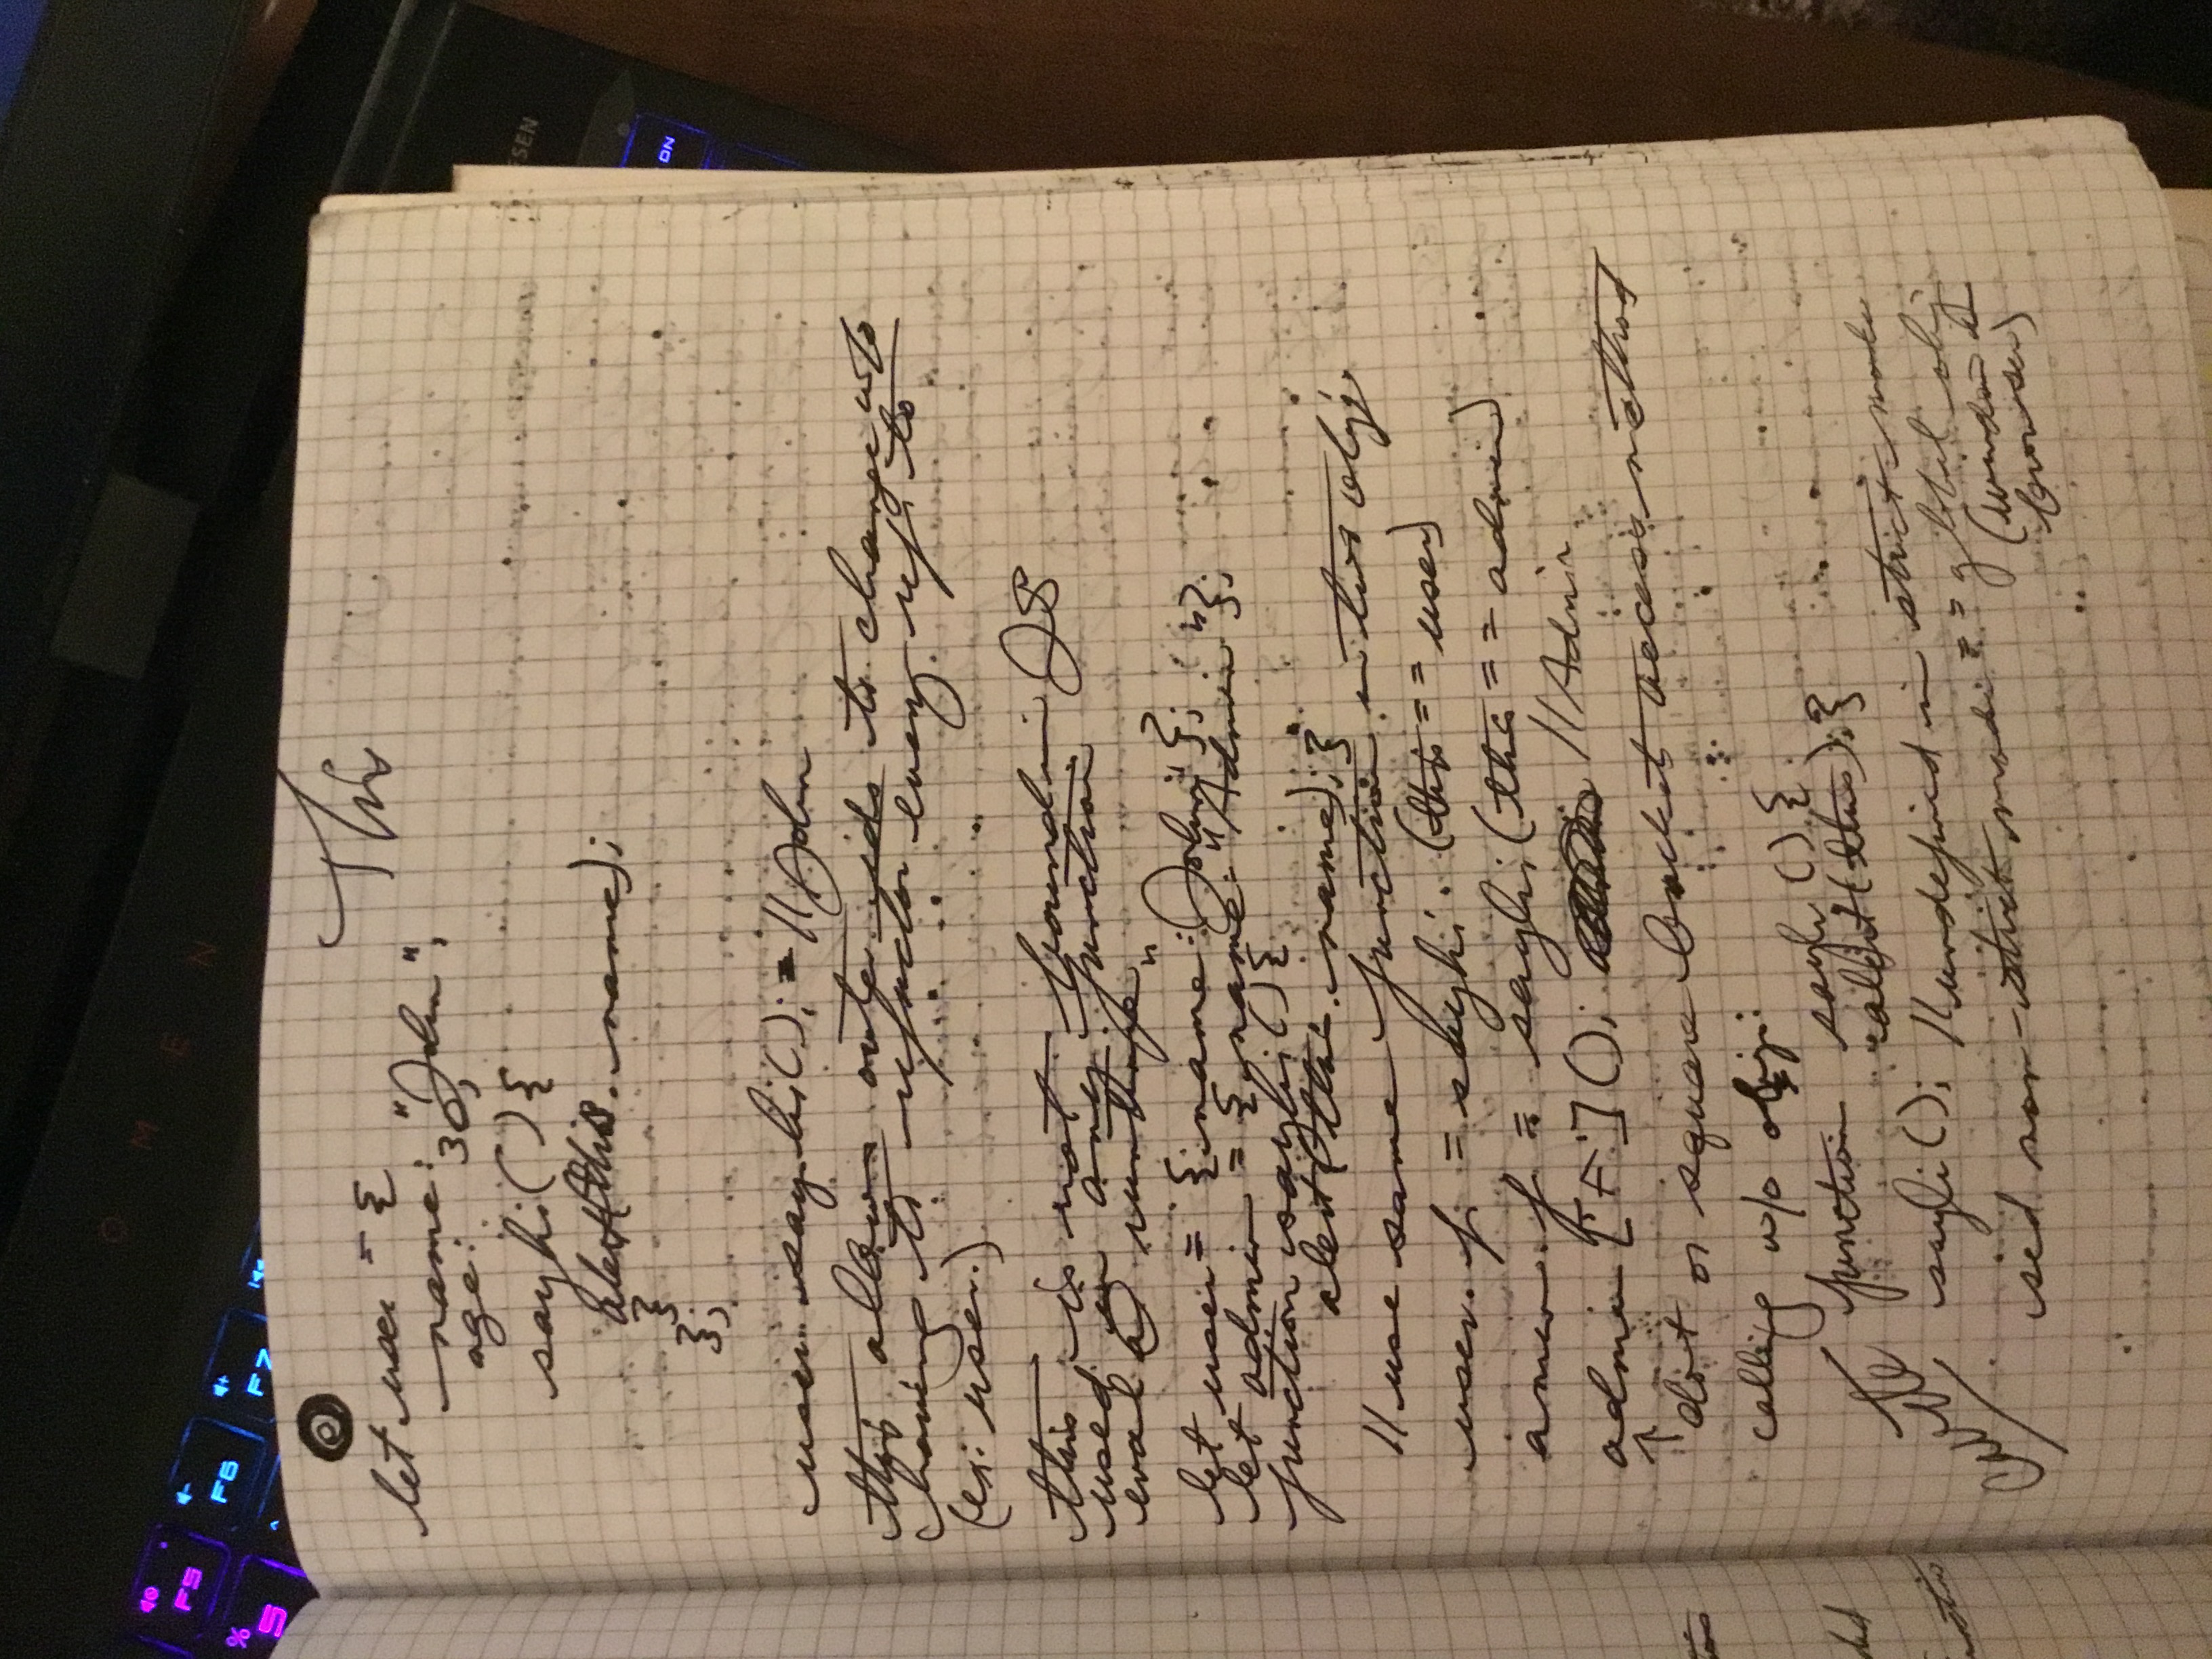 OMEN
F5
F6
F7
%
5
ESEN
ON
This
let user = {
name: "John",
age: 30,
sayhi() {
alert(this.name);
}
};
user.sayhi(); = // John
this allows outer ids to change w/o
having to refactor every ref to
(ex: user.)
this is not bound in JS
used in any function
eval @ runtime
let user = {name: "John"};
let admin = {name: "Admin"};
function sayhi() {
alert(this.name);}
// use same function in two obj.
user.f = sayhi. (this == user)
amin.f = sayhi (this == admin)
admin ['F'](); // Admin
↑
dot or square brackets access method
calling w/o obj:
function sayhi () {
alert(this);}
sayhi(); // undefined in strict mode
non-strict mode == global obj
(window @
browser)